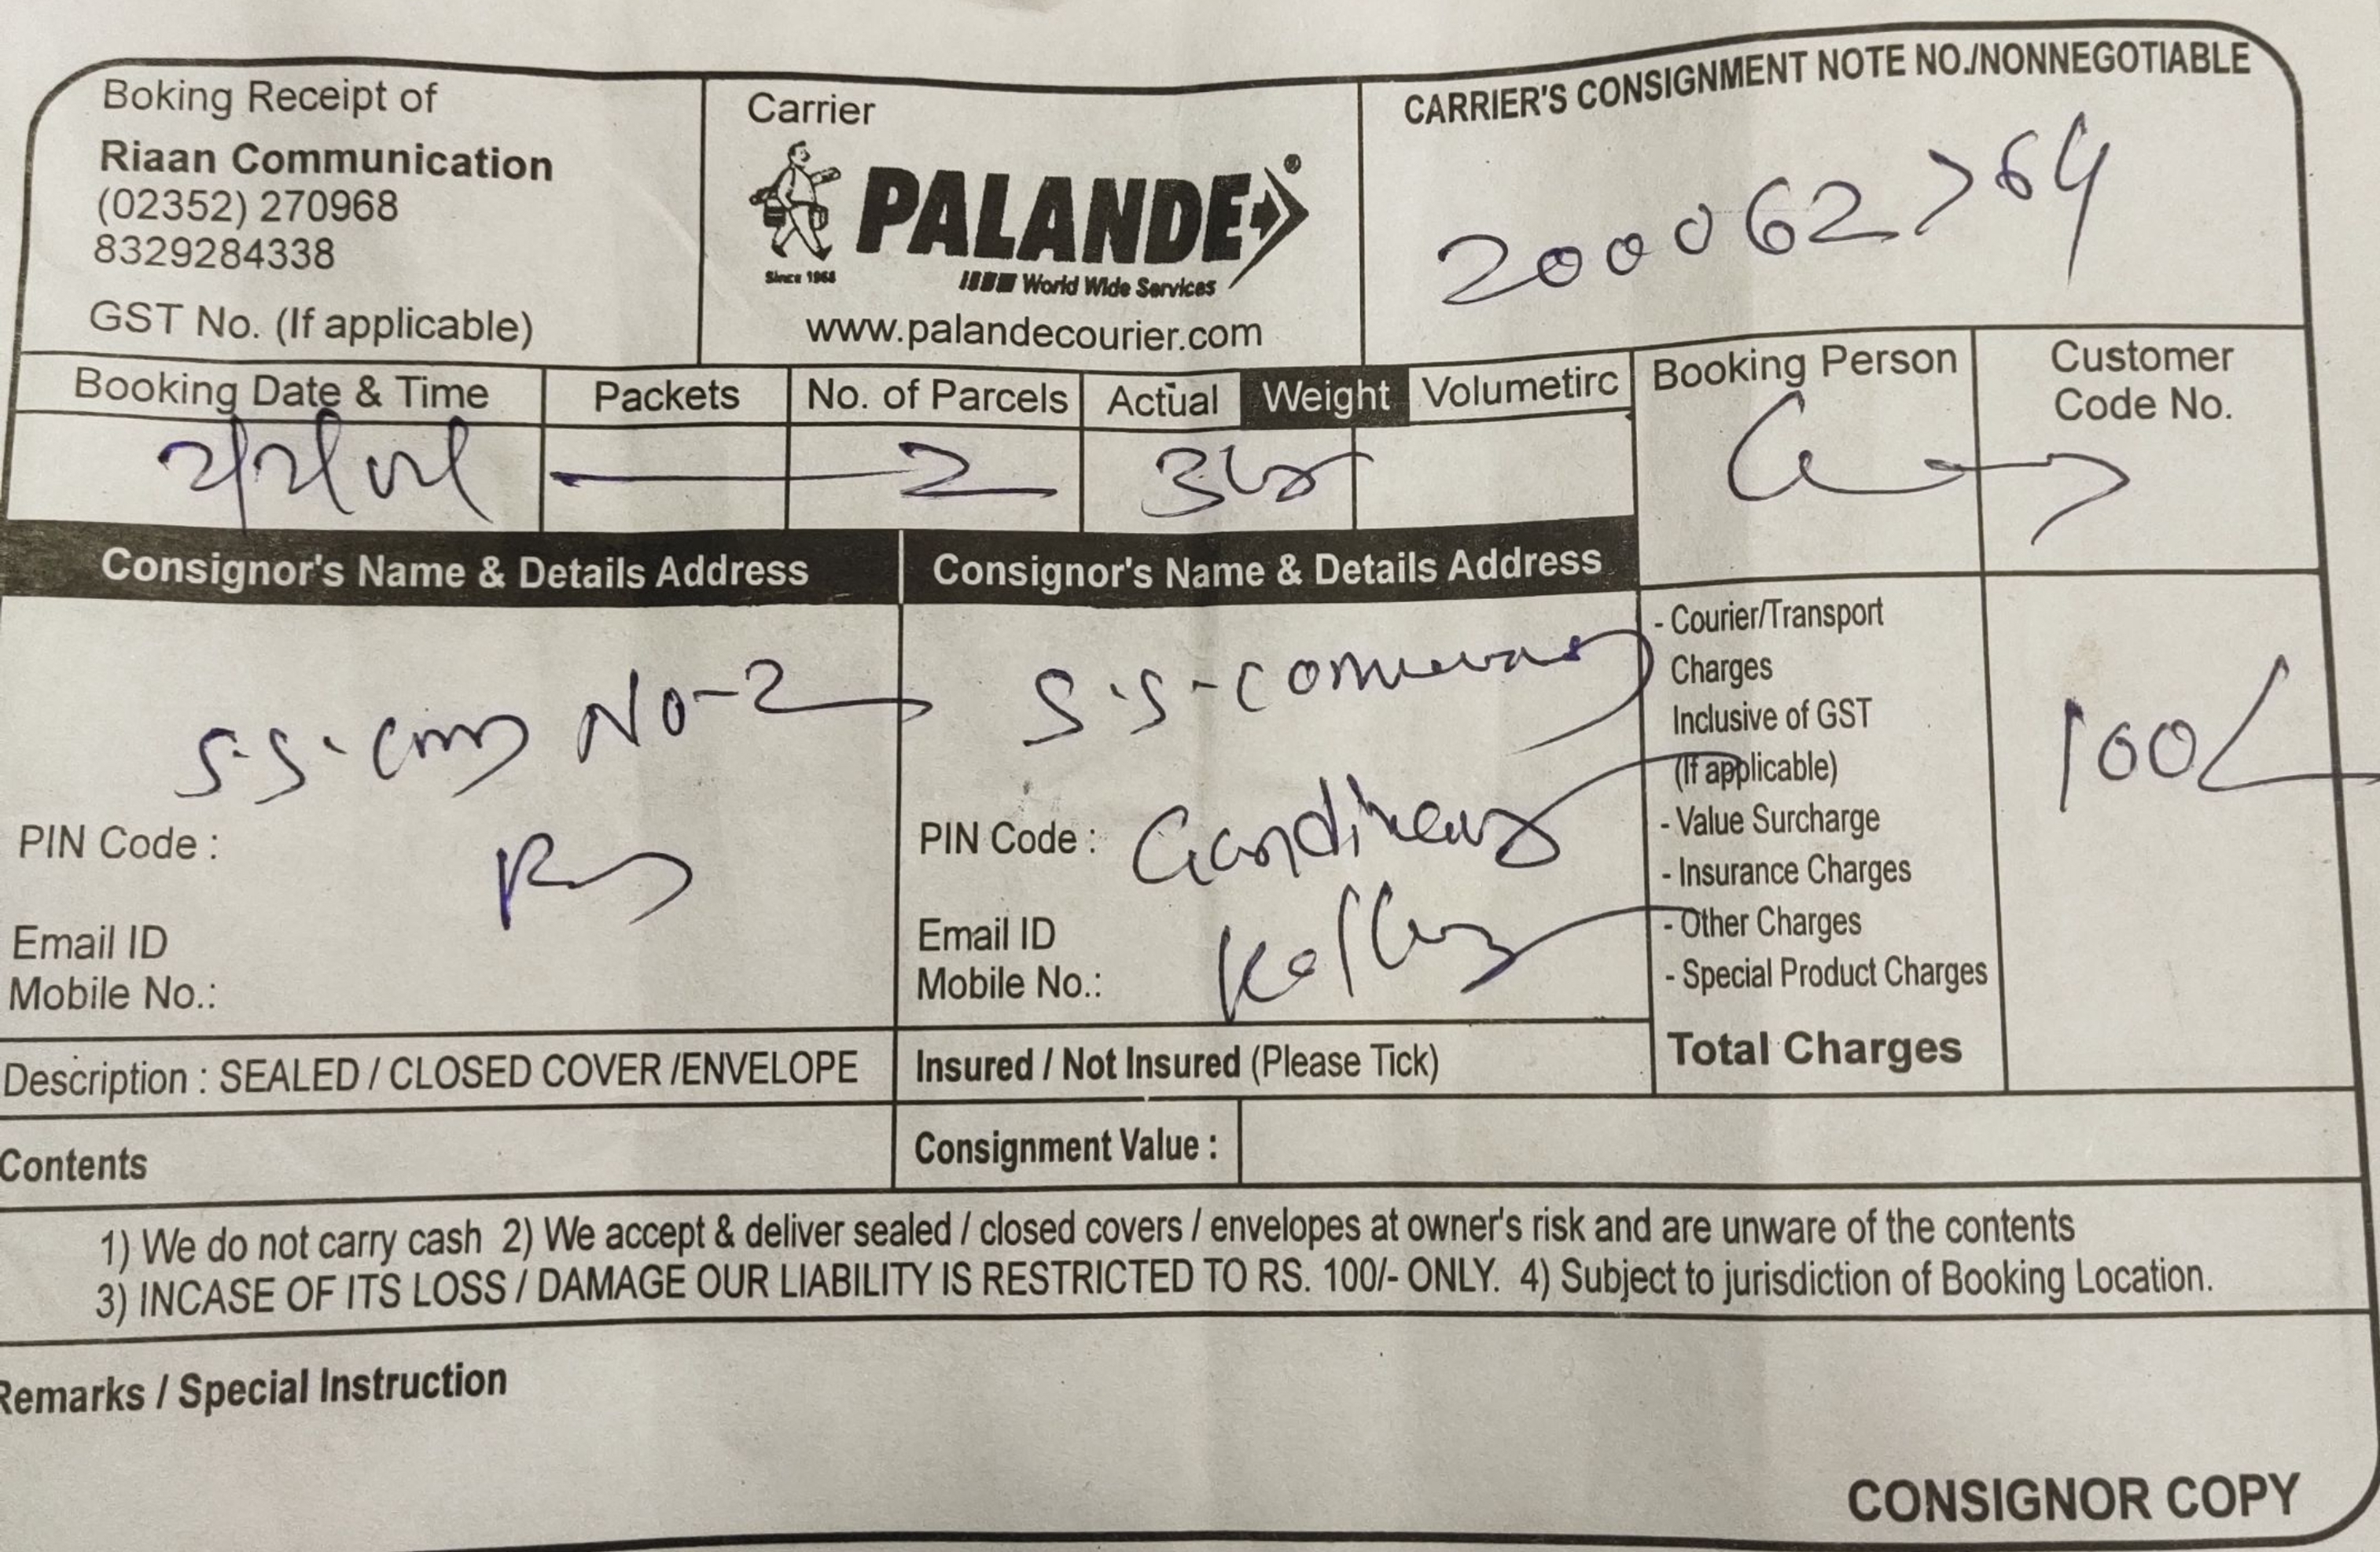 Boking Receipt of
Riaan Communication
(02352) 270968
8329284338
GST No. (If applicable)
Carrier
PALANDE
Since 1968
World Wide Services
www.palandecourier.com
CARRIER'S CONSIGNMENT NOTE NO./NONNEGOTIABLE
200062764
Booking Date & Time
Packets
No. of Parcels
Actual
Weight
Volumetirc
Booking Person
Customer
Code No.
2
Consignor's Name & Details Address
S.S. No-2
PIN Code :
Email ID
Mobile No.:
Consignor's Name & Details Address
S.S-
PIN Code :
Email ID
Mobile No.:
- Courier/Transport
Charges
Inclusive of GST
(If applicable)
- Value Surcharge
- Insurance Charges
- Other Charges
- Special Product Charges
Total Charges
100/-
Description : SEALED / CLOSED COVER /ENVELOPE
Insured / Not Insured (Please Tick)
Contents
Consignment Value :
1) We do not carry cash 2) We accept & deliver sealed / closed covers / envelopes at owner's risk and are unware of the contents
3) INCASE OF ITS LOSS / DAMAGE OUR LIABILITY IS RESTRICTED TO RS. 100/- ONLY. 4) Subject to jurisdiction of Booking Location.
Remarks / Special Instruction
CONSIGNOR COPY